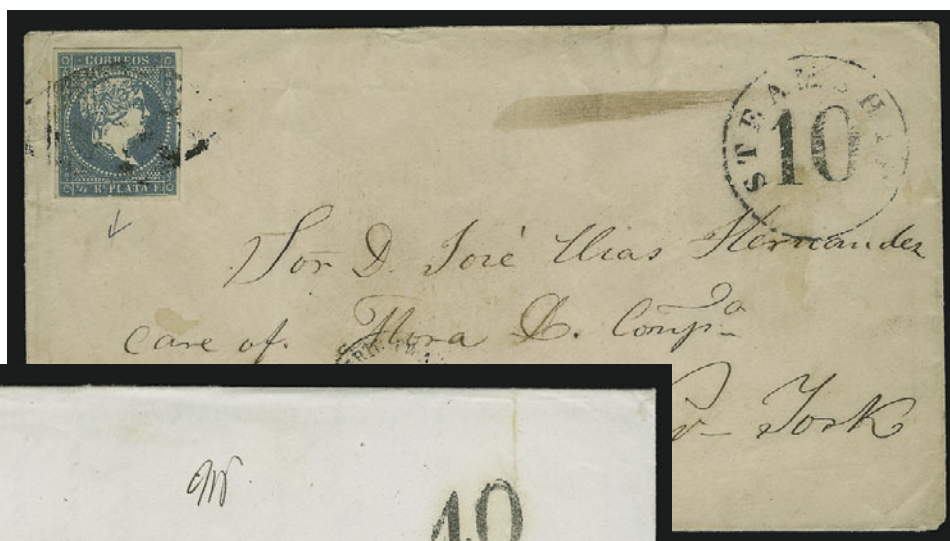 CORREOS
½ Rl PLATA F.
STEAMSHIP
10
Sor D. José Elias Hernandez
care of. Flora D. Compa
York
10